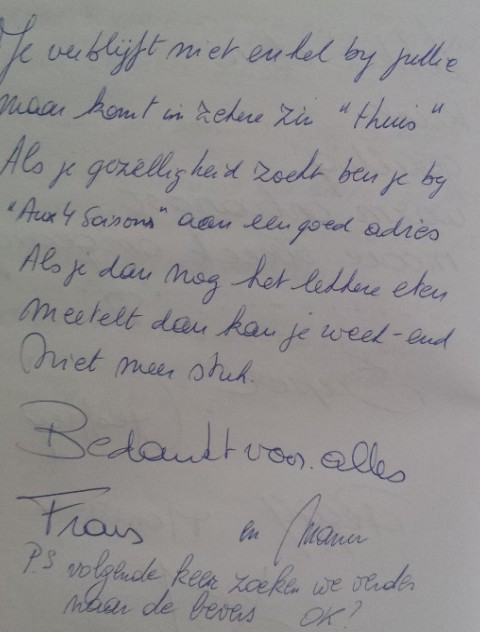 Je verblijft niet enkel by jullie
maar komt in zekere zin "thuis"
Als je gezelligheid zoekt ben je by
"Aux 4 Saisons" aan een goed adres
Als je dan nog het lekkere eten
meetelt dan kan je week-end
Niet meer stuk.
Bedankt voor alles
Frans en
P.S volgende keer zoeken we verder
naar de bevers OK?